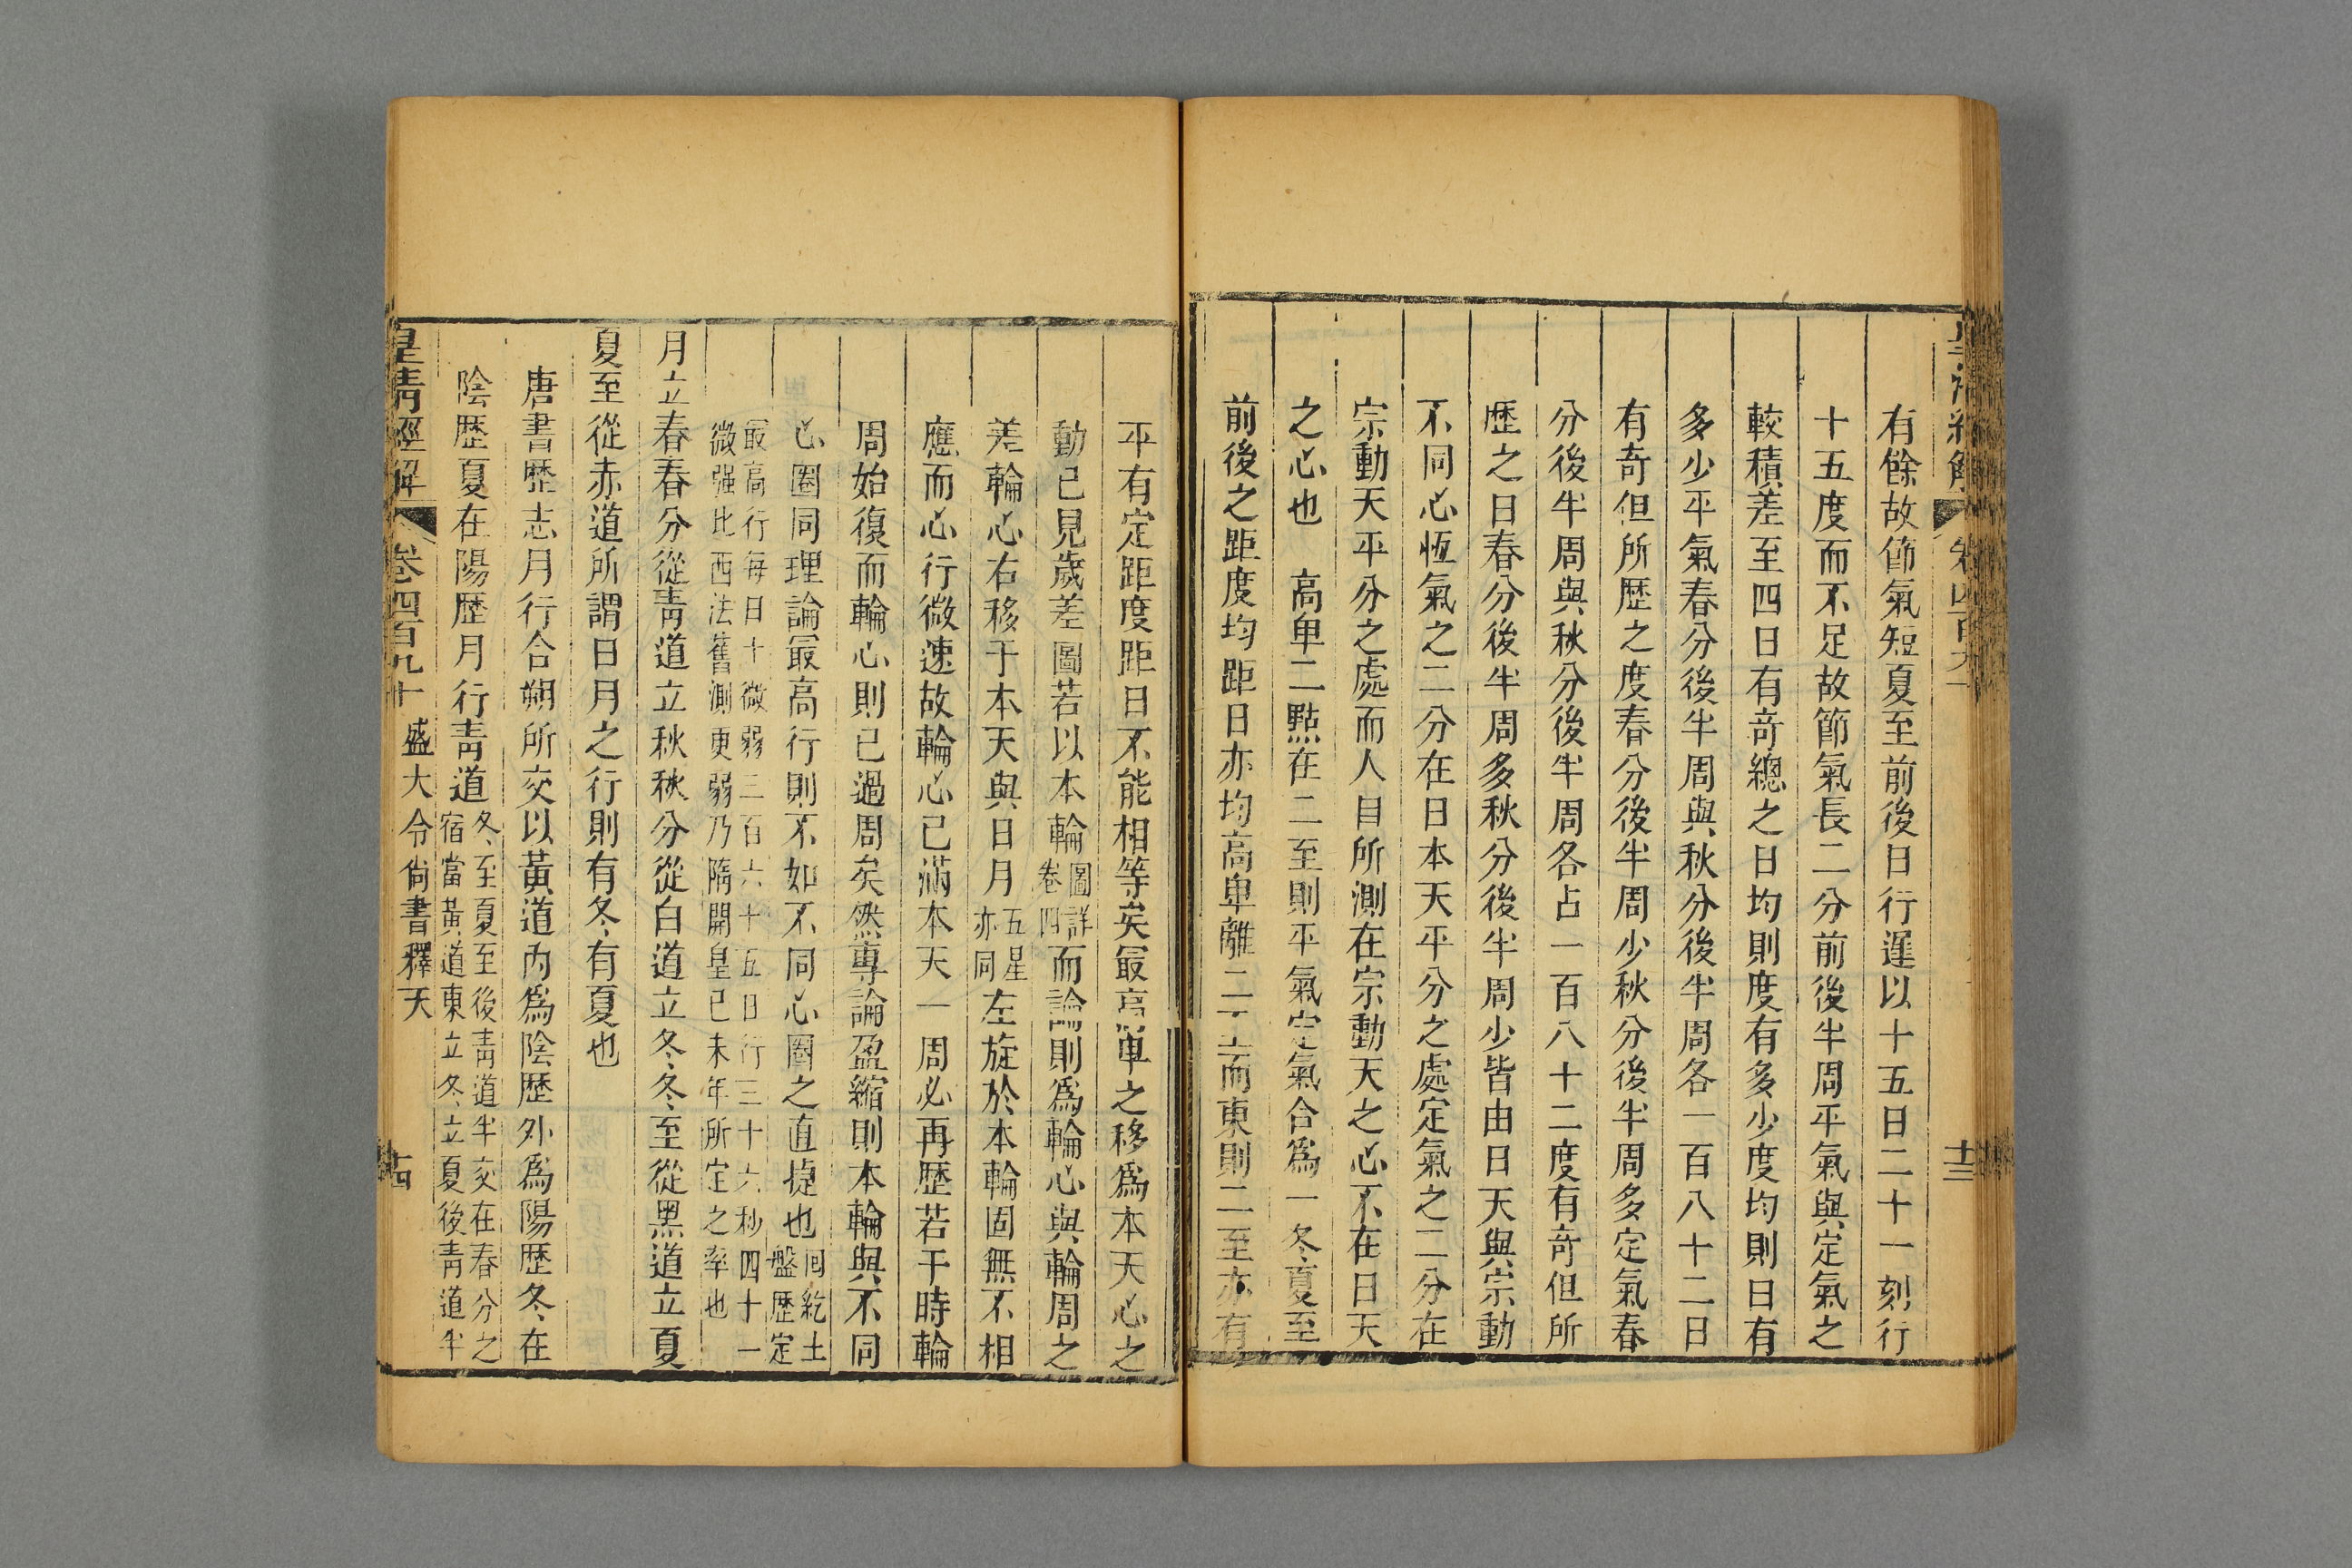 有餘故節氣短夏至前後日行遲以十五日二十一刻行
十五度而不足故節氣長二分前後半周平氣與定氣之
較積差至四日有奇總之日均則度有多少度均則日有
多少平氣春分後半周與秋分後半周各一百八十二日
有奇但所歷之度春分後半周少秋分後半周多定氣春
分後半周與秋分後半周各占一百八十二度有奇但所
歷之日春分後半周多秋分後半周少皆由日天與宗動
不同心恆氣之二分在日本天平分之處定氣之二分在
宗動天平分之處而人目所測在宗動天之心不在日天
之心也　高卑二點在二至則平氣定氣合爲一冬夏至
前後之距度均距日亦均高卑離二至而東則二至亦有
十三
平有定距度距日不能相等矣最高卑之移爲本天心之
動已見歲差圖若以本輪圖詳卷四而論則爲輪心與輪周之
差輪心右移于本天與日月五星亦同左旋於本輪固無不相
應而心行微速故輪心已滿本天一周必再歷若干時輪
周始復而輪心則已過周矣然專論盈縮則本輪與不同
心圈同理論最高行則不如不同心圈之直捷也回紇土盤歷定
最高行每日十微弱三百六十五日行三十六秒四十一
微强比西法舊測更弱乃隋開皇己未年所定之率也
月立春春分從靑道立秋秋分從白道立冬冬至從黑道立夏
夏至從赤道所謂日月之行則有冬有夏也
唐書歷志月行合朔所交以黃道內爲陰歷外爲陽歷冬在
陰歷夏在陽歷月行靑道冬至夏至後靑道半交在春分之宿當黃道東立冬立夏後靑道半
皇淸經解　卷四百九十　盛大令尙書釋天　十四